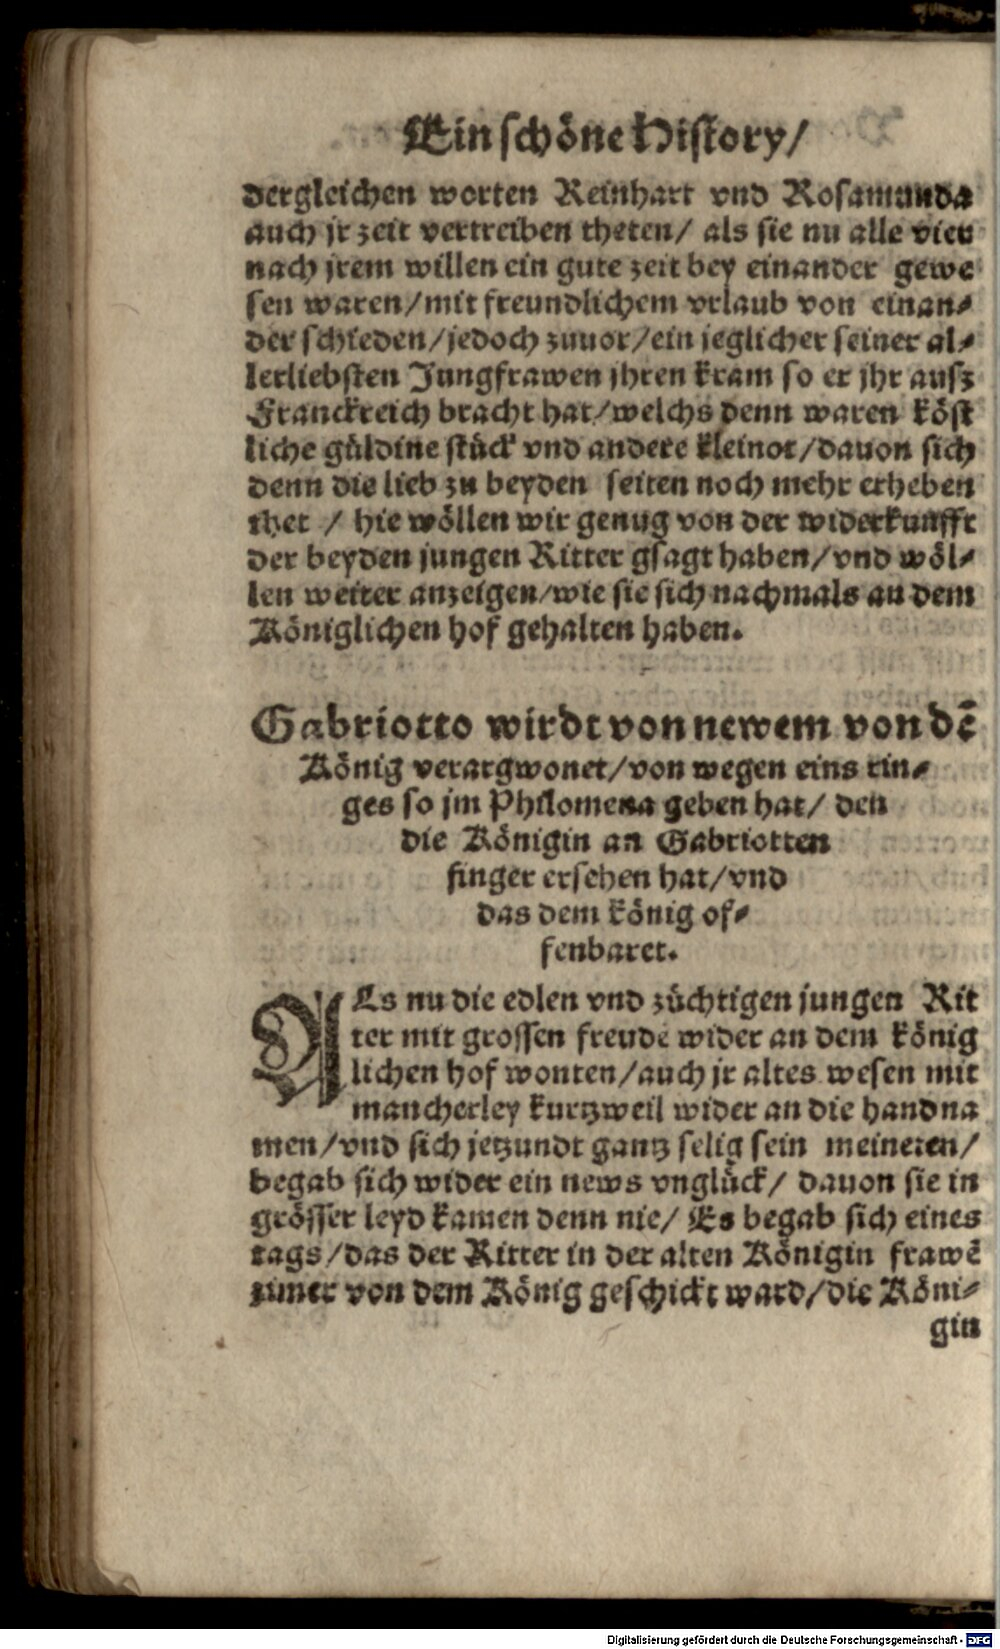 Ein schöne History/
dergleichen worten Reinhart vnd Rosamunda
auch jr zeit vertreiben theten/ als sie nu alle vier
nach jrem willen ein gute zeit bey einander gewe
sen waren/mit freundlichem vrlaub von einan⸗
der schieden/jedoch zuuor/ein jeglicher seiner al⸗
lerliebsten Jungfrawen jhren kram so er jhr ausz
Franckreich bracht hat/welchs denn waren köst
liche güldine stück vnd andere kleinot/dauon sich
denn die lieb zu beyden seiten noch mehr erheben
thet / hie wöllen wir genug von der widerkunfft
der beyden jungen Ritter gsagt haben/vnd wöl⸗
len weiter anzeigen/wie sie sich nachmals an dem
Königlichen hof gehalten haben.
Gabriotto wirdt von newem von dē
König verargwonet/von wegen eins rin⸗
ges so jm Philomena geben hat/ den
die Königin an Gabriotten
finger ersehen hat/vnd
das dem könig of⸗
fenbaret.
ALs nu die edlen vnd züchtigen jungen Rit
ter mit grossen freude wider an dem könig
lichen hof wonten/auch jr altes wesen mit
mancherley kurtzweil wider an die hand na
men/vnd sich jetzundt gantz selig sein meineten/
begab sich wider ein news vnglück/ dauon sie in
grösser leyd kamen denn nie/ Es begab sich eines
tags/das der Ritter in der alten Königin frawē
zimer von dem König geschickt ward/die Köni⸗
gin
Digitalisierung gefördert durch die Deutsche Forschungsgemeinschaft - DFG